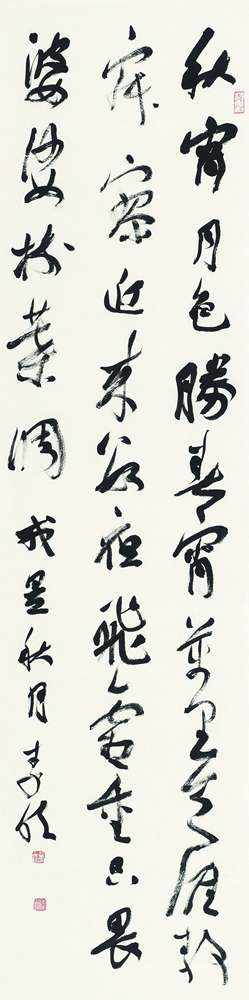 秋宵月色勝春宵萬里天涯静
寂寥近来數夜飛霜重只畏
婆娑樹葉凋 戎昱秋月